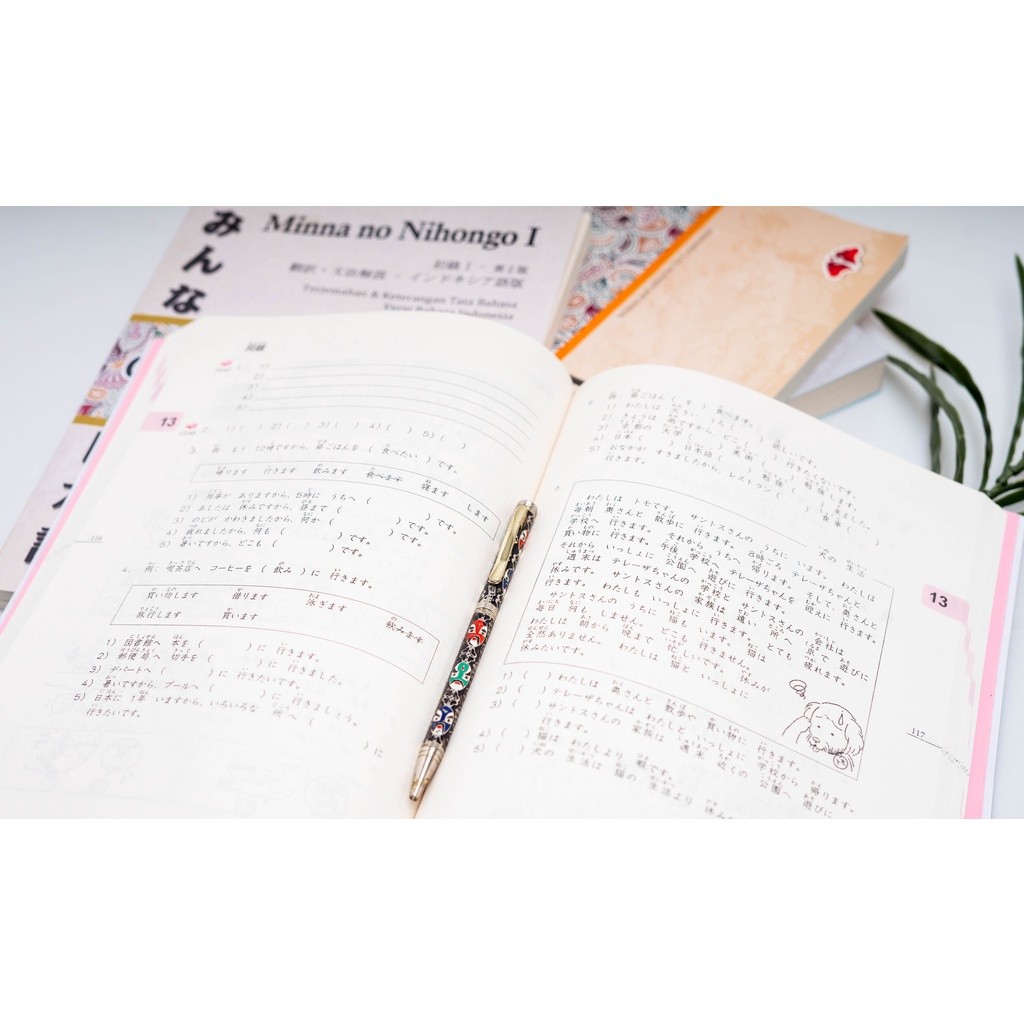 みんな
Minna no Nihongo I
初級 I － 第2版
翻訳・文法解説 － インドネシア語版
Terjemahan & Keterangan Tata Bahasa
Versi Bahasa Indonesia
問題
1. 1)
2)
3)
4)
5)
13
2. 1) ( ) 2) ( ) 3) ( ) 4) ( ) 5) ( )
3. 例: もう 12時ですから、昼ごはんを ( 食べたい ) です。
帰ります 行きます 飲みます 食べます 寝ます します
1) 用事が ありますから、5時に うちへ ( ) です。
2) あしたは 休みですから、昼まで ( ) です。
3) のどが かわきましたから、何か ( ) です。
4) 疲れましたから、何も ( ) です。
5) 暑いですから、どこも ( ) です。
116
4. 例: 喫茶店へ コーヒーを ( 飲み ) に 行きます。
買い物します 借ります 泳ぎます 飲みます
旅行します 買います
1) 図書館へ 本を ( ) に 行きます。
2) 郵便局へ 切手を ( ) に 行きました。
3) デパートへ ( ) に 行きたいです。
4) 暑いですから、プールへ ( ) に 行きましょう。
5) 日本に 1年 いますから、いろいろな 所へ ( ) に
行きたいです。
例: 昼ごはん ( を ) 食べます。
1) わたしは 大きい うち ( ) 欲しいです。
2) きょうは 雨ですから、どこ ( ) 行きたくないです。
3) 京都の 大学 ( ) 美術 ( ) 勉強します。
4) 日本 ( ) 日本語 ( ) 勉強 ( ) 来ました。
5) おなかが すきましたから、レストラン ( ) 食事 ( )
行きます。
犬の 生活
わたしは トモです。 サントスさんの うちに います。 わたしは
毎朝 奥さんと 散歩に 行きます。 8時ごろ テレーザちゃんと
学校へ 行きます。 それから、うちへ 帰ります。 そして、奥さんと
買い物に 行きます。 午後 学校へ テレーザちゃんを 迎えに 行きます。
それから、いっしょに 公園へ 遊びに 行きます。
週末は テレーザちゃんの 学校と サントスさんの 会社は
休みです。 サントスさんの 家族は 遠い 所へ 車で 遊びに
行きます。 わたしも いっしょに 行きます。 とても 疲れます。
サントスさんの うちに 猫も います。 猫は
毎日 何も しません。 どこも 行きません。
わたしは 朝から 晩まで 忙しいです。 休みが
全然 ありません。 わたしは 猫と いっしょに
休みたいです。
1) ( ) わたしは 奥さんと 散歩や 買い物に 行きます。
2) ( ) テレーザちゃんは わたしと いっしょに 学校から 帰ります。
3) ( ) サントスさんの 家族は 週末 近くの 公園へ 遊びに
行きます。
4) ( ) 猫は わたしより 暇です。
5) ( ) 犬の 生活は 猫の 生活より
13
117